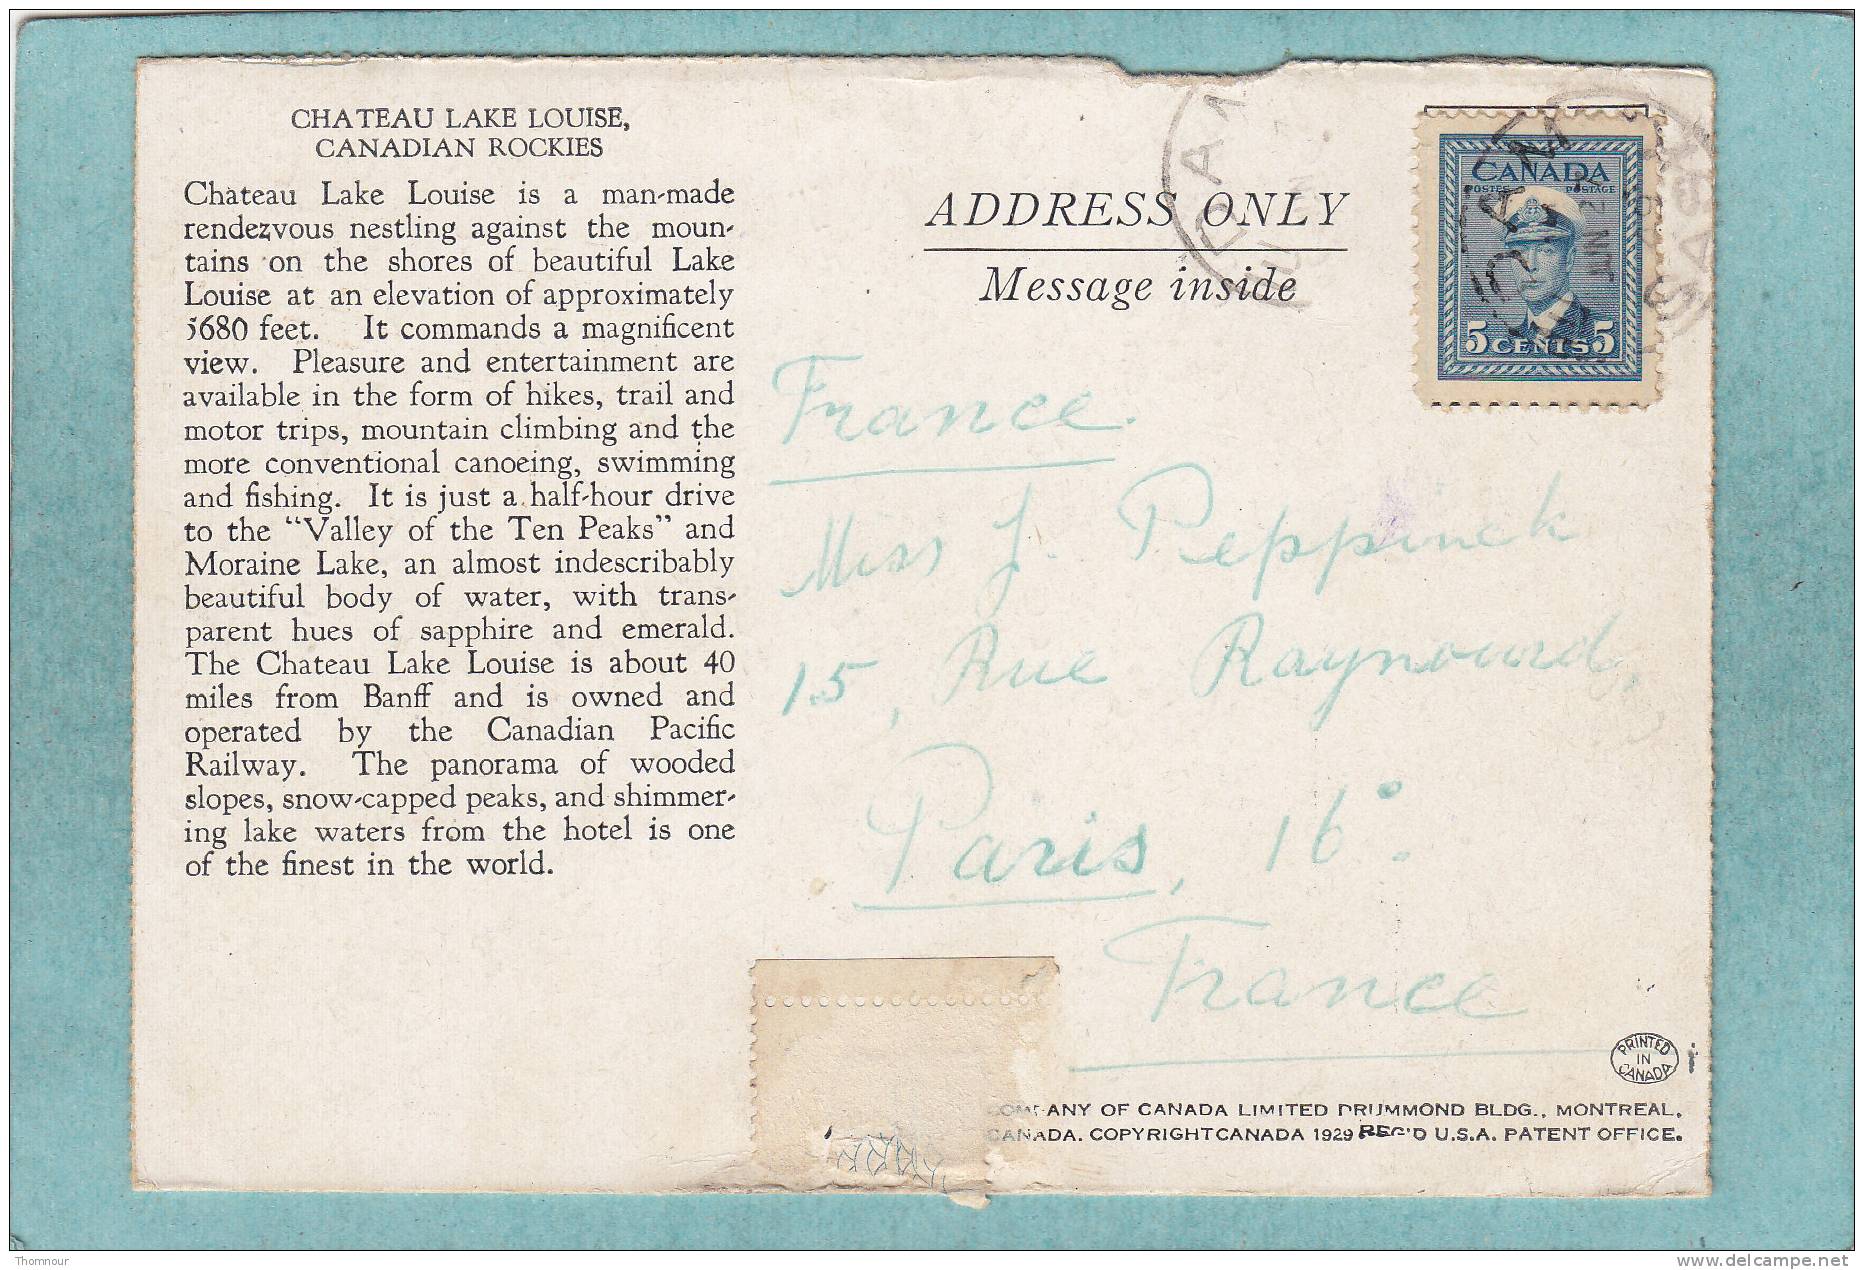 CHATEAU LAKE LOUISE,
CANADIAN ROCKIES
Chateau Lake Louise is a man-made
rendezvous nestling against the moun-
tains on the shores of beautiful Lake
Louise at an elevation of approximately
5680 feet. It commands a magnificent
view. Pleasure and entertainment are
available in the form of hikes, trail and
motor trips, mountain climbing and the
more conventional canoeing, swimming
and fishing. It is just a half-hour drive
to the “Valley of the Ten Peaks” and
Moraine Lake, an almost indescribably
beautiful body of water, with trans-
parent hues of sapphire and emerald.
The Chateau Lake Louise is about 40
miles from Banff and is owned and
operated by the Canadian Pacific
Railway. The panorama of wooded
slopes, snow-capped peaks, and shimmer-
ing lake waters from the hotel is one
of the finest in the world.
ADDRESS ONLY
Message inside
CANADA
POSTES POSTAGE
5 CENTS 5
France.
Miss J. Peppinck
15, Rue Raynouard,
Paris, 16°.
France
PRINTED
IN
CANADA
COMPANY OF CANADA LIMITED DRUMMOND BLDG., MONTREAL,
CANADA. COPYRIGHT CANADA 1929 REG'D U.S.A. PATENT OFFICE.
Thomnour
www.delcampe.net